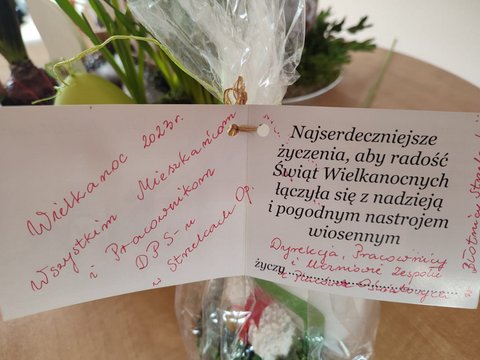 Wielkanoc 2023r.
Wszystkim Mieszkańcom
i Pracownikom
DPS-u
w Strzelcach Op.
Najserdeczniejsze
życzenia, aby radość
Świąt Wielkanocnych
łączyła się z nadzieją
i pogodnym nastrojem
wiosennym
Dyrekcja, Pracownicy
i Uczniowie Zespołu
życzy